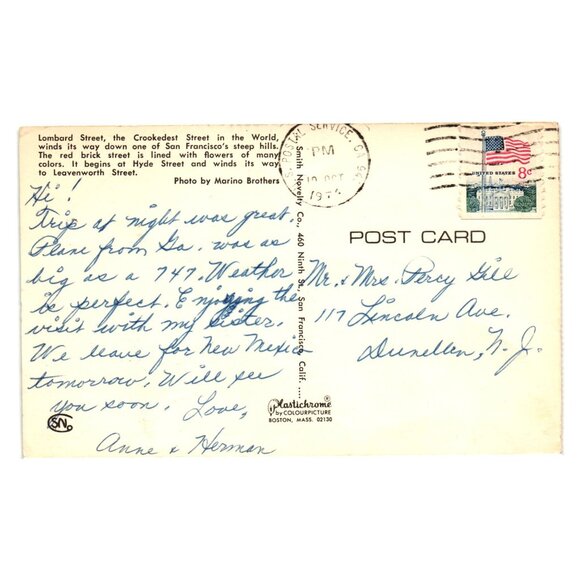 Lombard Street, the Crookedest Street in the World,
winds its way down one of San Francisco's steep hills.
The red brick street is lined with flowers of many
colors. It begins at Hyde Street and winds its way
to Leavenworth Street.
Photo by Marino Brothers
Hi!
Trip at night was great.
Plane from Ga. was as
big as a 747. Weather
is perfect. Enjoying the
visit with my sister.
We leave for New Mexico
tomorrow. Will see
you soon. Love,
Anne & Herman
SN
Smith Novelty Co., 460 Ninth St., San Francisco, Calif.
Plastichrome®
by COLOURPICTURE
BOSTON, MASS. 02130
POSTAL SERVICE, CA
PM
OCT
UNITED STATES 8¢
POST CARD
Mr. & Mrs. Percy Gill
117 Lincoln Ave.
Dunellen, N. J.